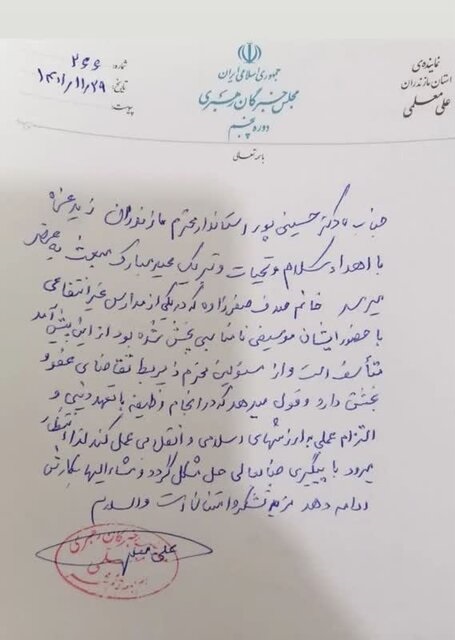 نماینده‌ی
استان مازندران
علی معلمی
جمهوری اسلامی ایران
مجلس خبرگان رهبری
دوره پنجم
شماره: ۲۶۶
تاریخ: ۱۴۰۱/۱۱/۲۹
پیوست:
باسمه تعالی
جناب دکتر حسینی پور استاندار محترم مازندران زید عزه
با اهداء سلام و تحیات و تبریک عید مبارک مبعث به عرض
میرسد خانم صدف صفرزاده که در یکی از مدارس غیرانتفاعی
با حضور ایشان موسیقی نامناسبی پخش شده بود از این پیش آمد
متأسف است و از مسئولین محترم ذیربط تقاضای عفو و
بخشش دارد و قول میدهد که در انجام وظیفه با تعهد دینی و
التزام عملی به ارزشهای اسلامی و انقلابی عمل کند لذا انتظار
میرود با پیگیری جنابعالی حل مشکل گردد و مشارالیها بکارش
ادامه دهد مزید تشکر و امتنان است والسلام
علی معلمی